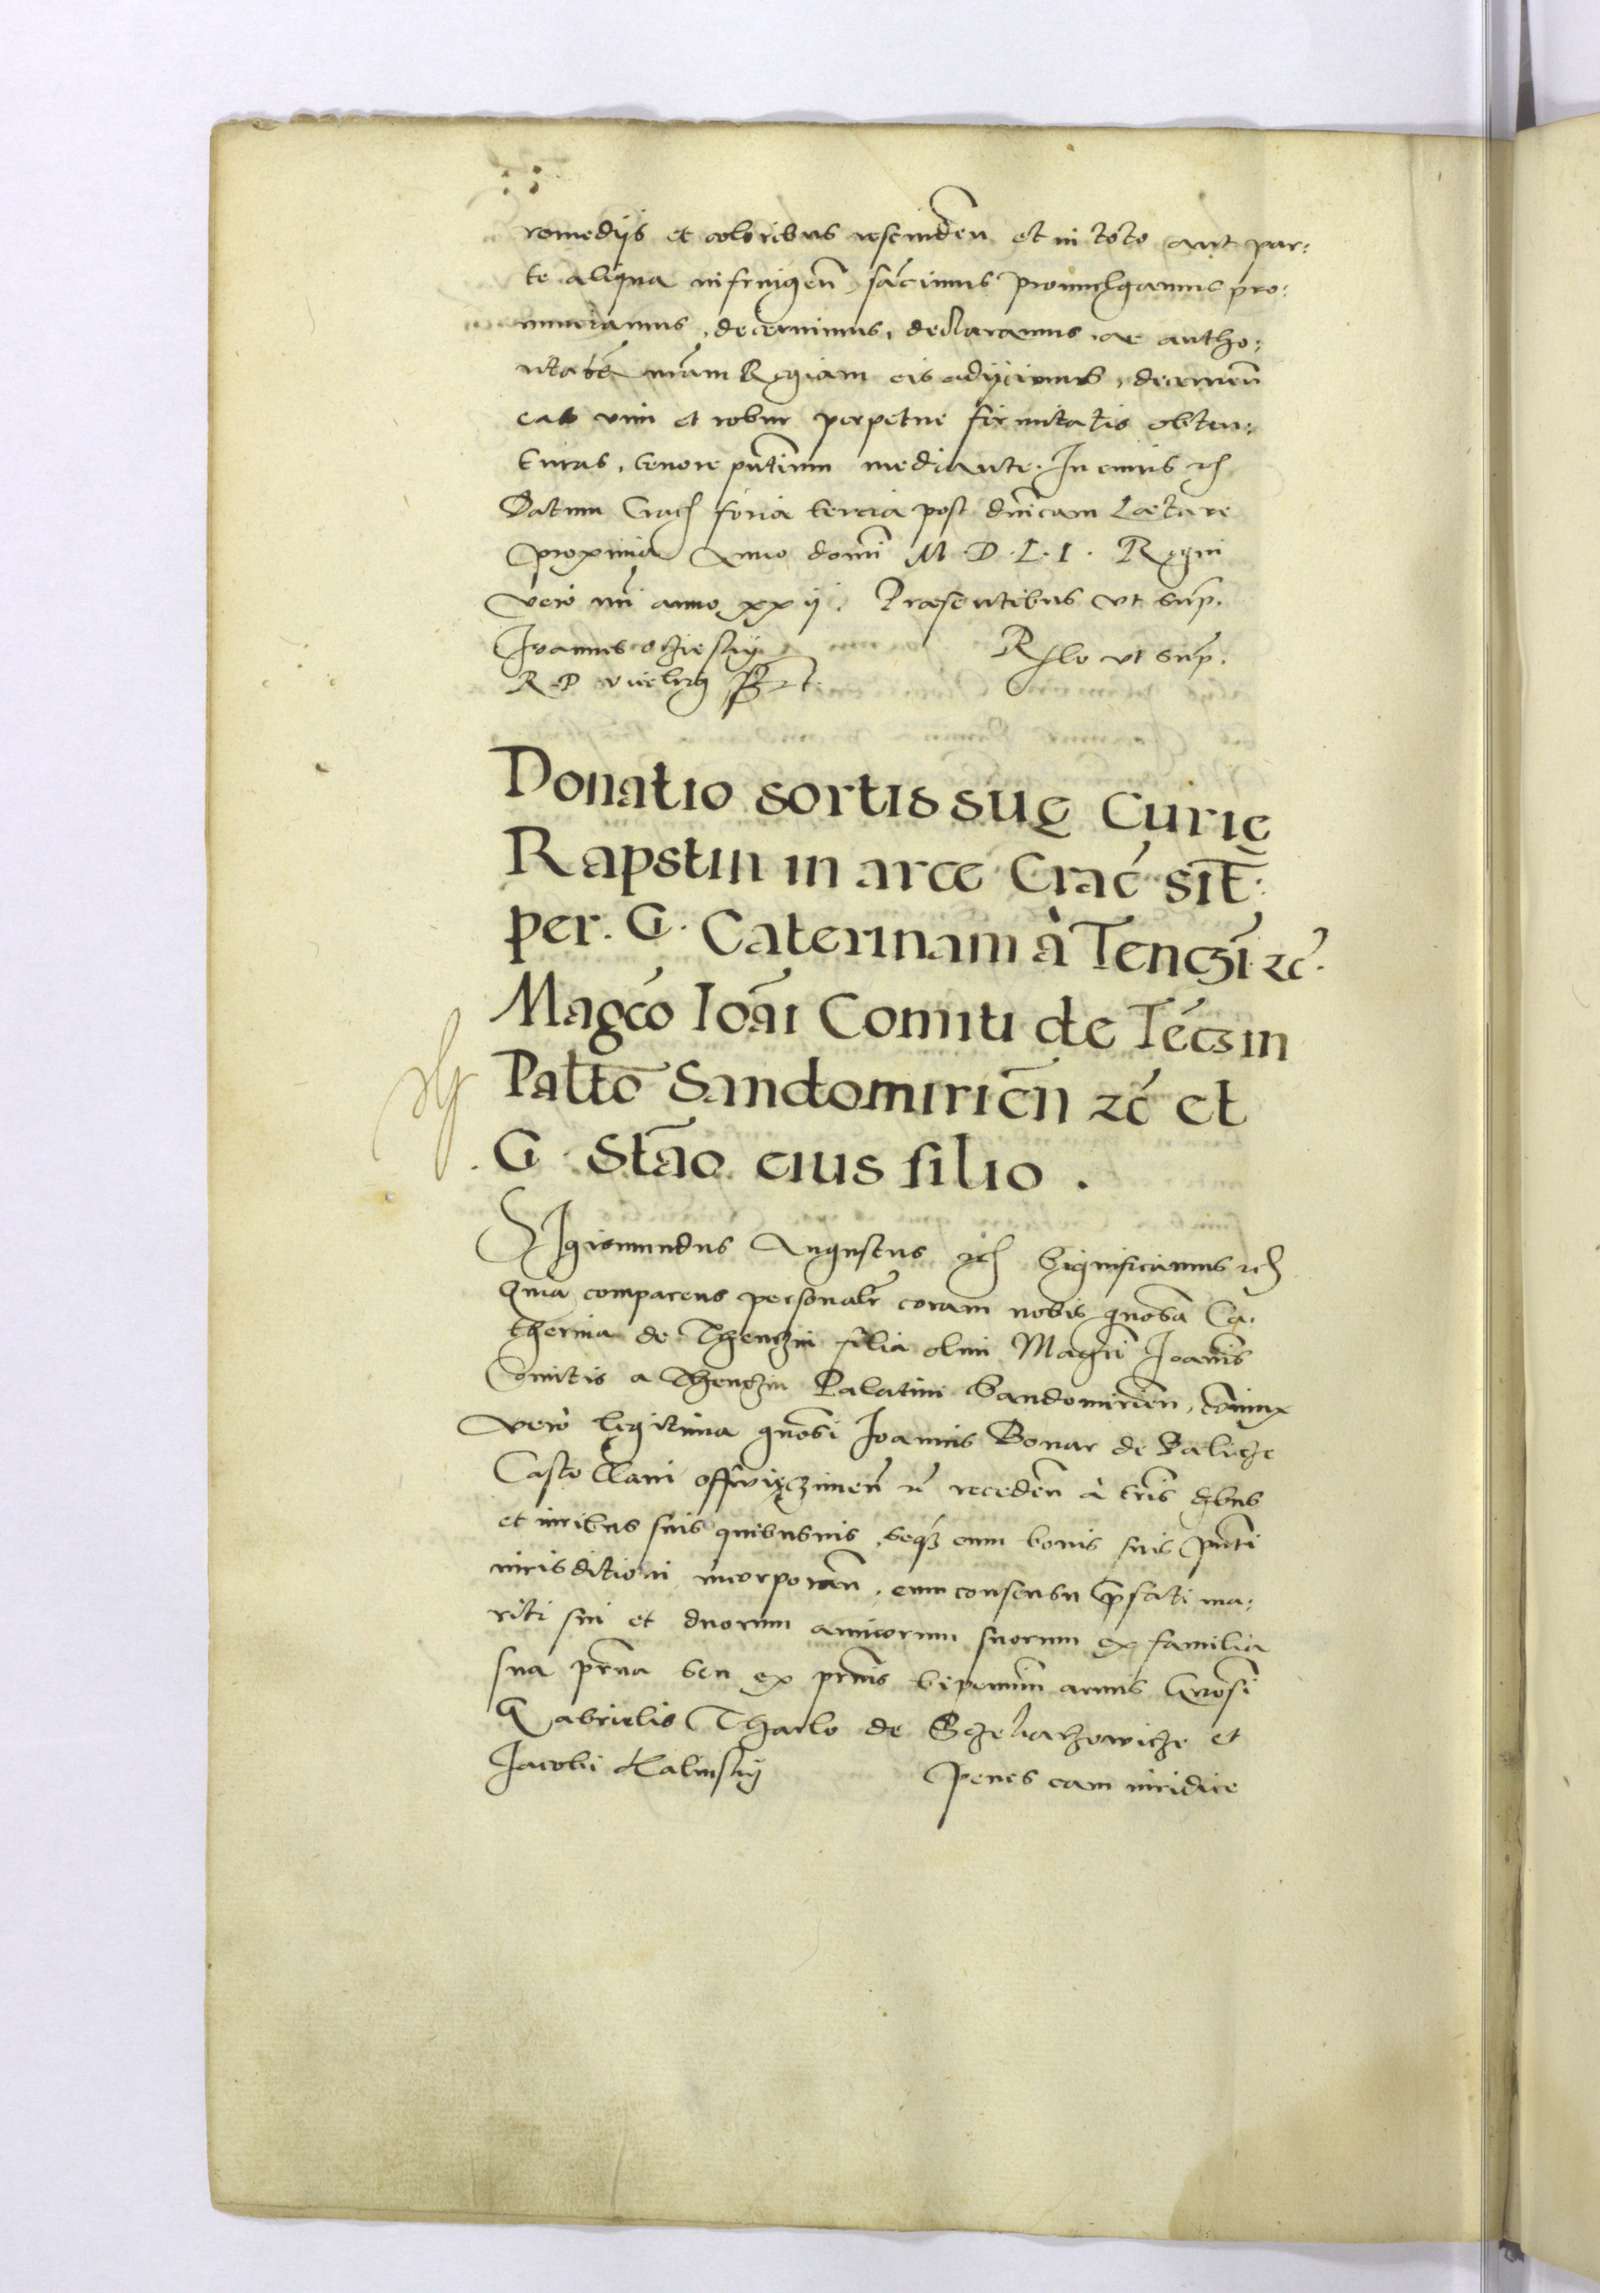 remedijs et coloribus rescinden̄ et in toto aut par:
te aliqua infringen̄, sancimus promulgamus pro:
nunciamus, decernimus, declaramus, ac autho:
ritatē nr̄am Regiam eis adijcimus, decernen̄
eas vim et robur perpetue firmitatis obten:
turas, tenore pn̄tium mediante. In cuius rc̄
Datum Crac̄ feria tercia post dn̄icam Laetare
proxima Anno domī M. D. L. I. Regni
vero nr̄i anno xxij. Praesentibus vt sup̄.
Joannes Oczieskij
R P vicecan̄
Rlo vt sup̄.
Donatio sortis suę Curię
Rapstin in arce Crac̄ sit̄:
per. G. Caterinam à Tenczī. rc̄.
Magc̄o Ioāi Comiti de Tēczin
Palt̄o Sandomirien̄ rc̄ et
G. Stāo eius filio.
Sigismundus Augustus rc̄ Significamus rc̄
Quia comparens personalr̄ coram nobis gn̄osa Ca:
therina de Thenczin filia olim Magc̄i Joannis
Comitis a Thenczin Palatini Sandomirien̄, coniunx
vero legitima gn̄osi Joannis Bonar de Balicze
Castellani Osswijęczimen̄ rc̄ receden̄ à tr̄is
et iuribus suis quibusuis, seq3 cum bonis suis pn̄ti
iurisditioni incorporan̄, cum consensu p̄fati ma:
riti sui et duorum amicorum suorum ex familia
sua pr̄na seu ex pr̄nis bipennium armis Gn̄osi
Gabrielis Tharlo de Sczekarzowicze et
Jacobi Kalinskij penes eam iuridice